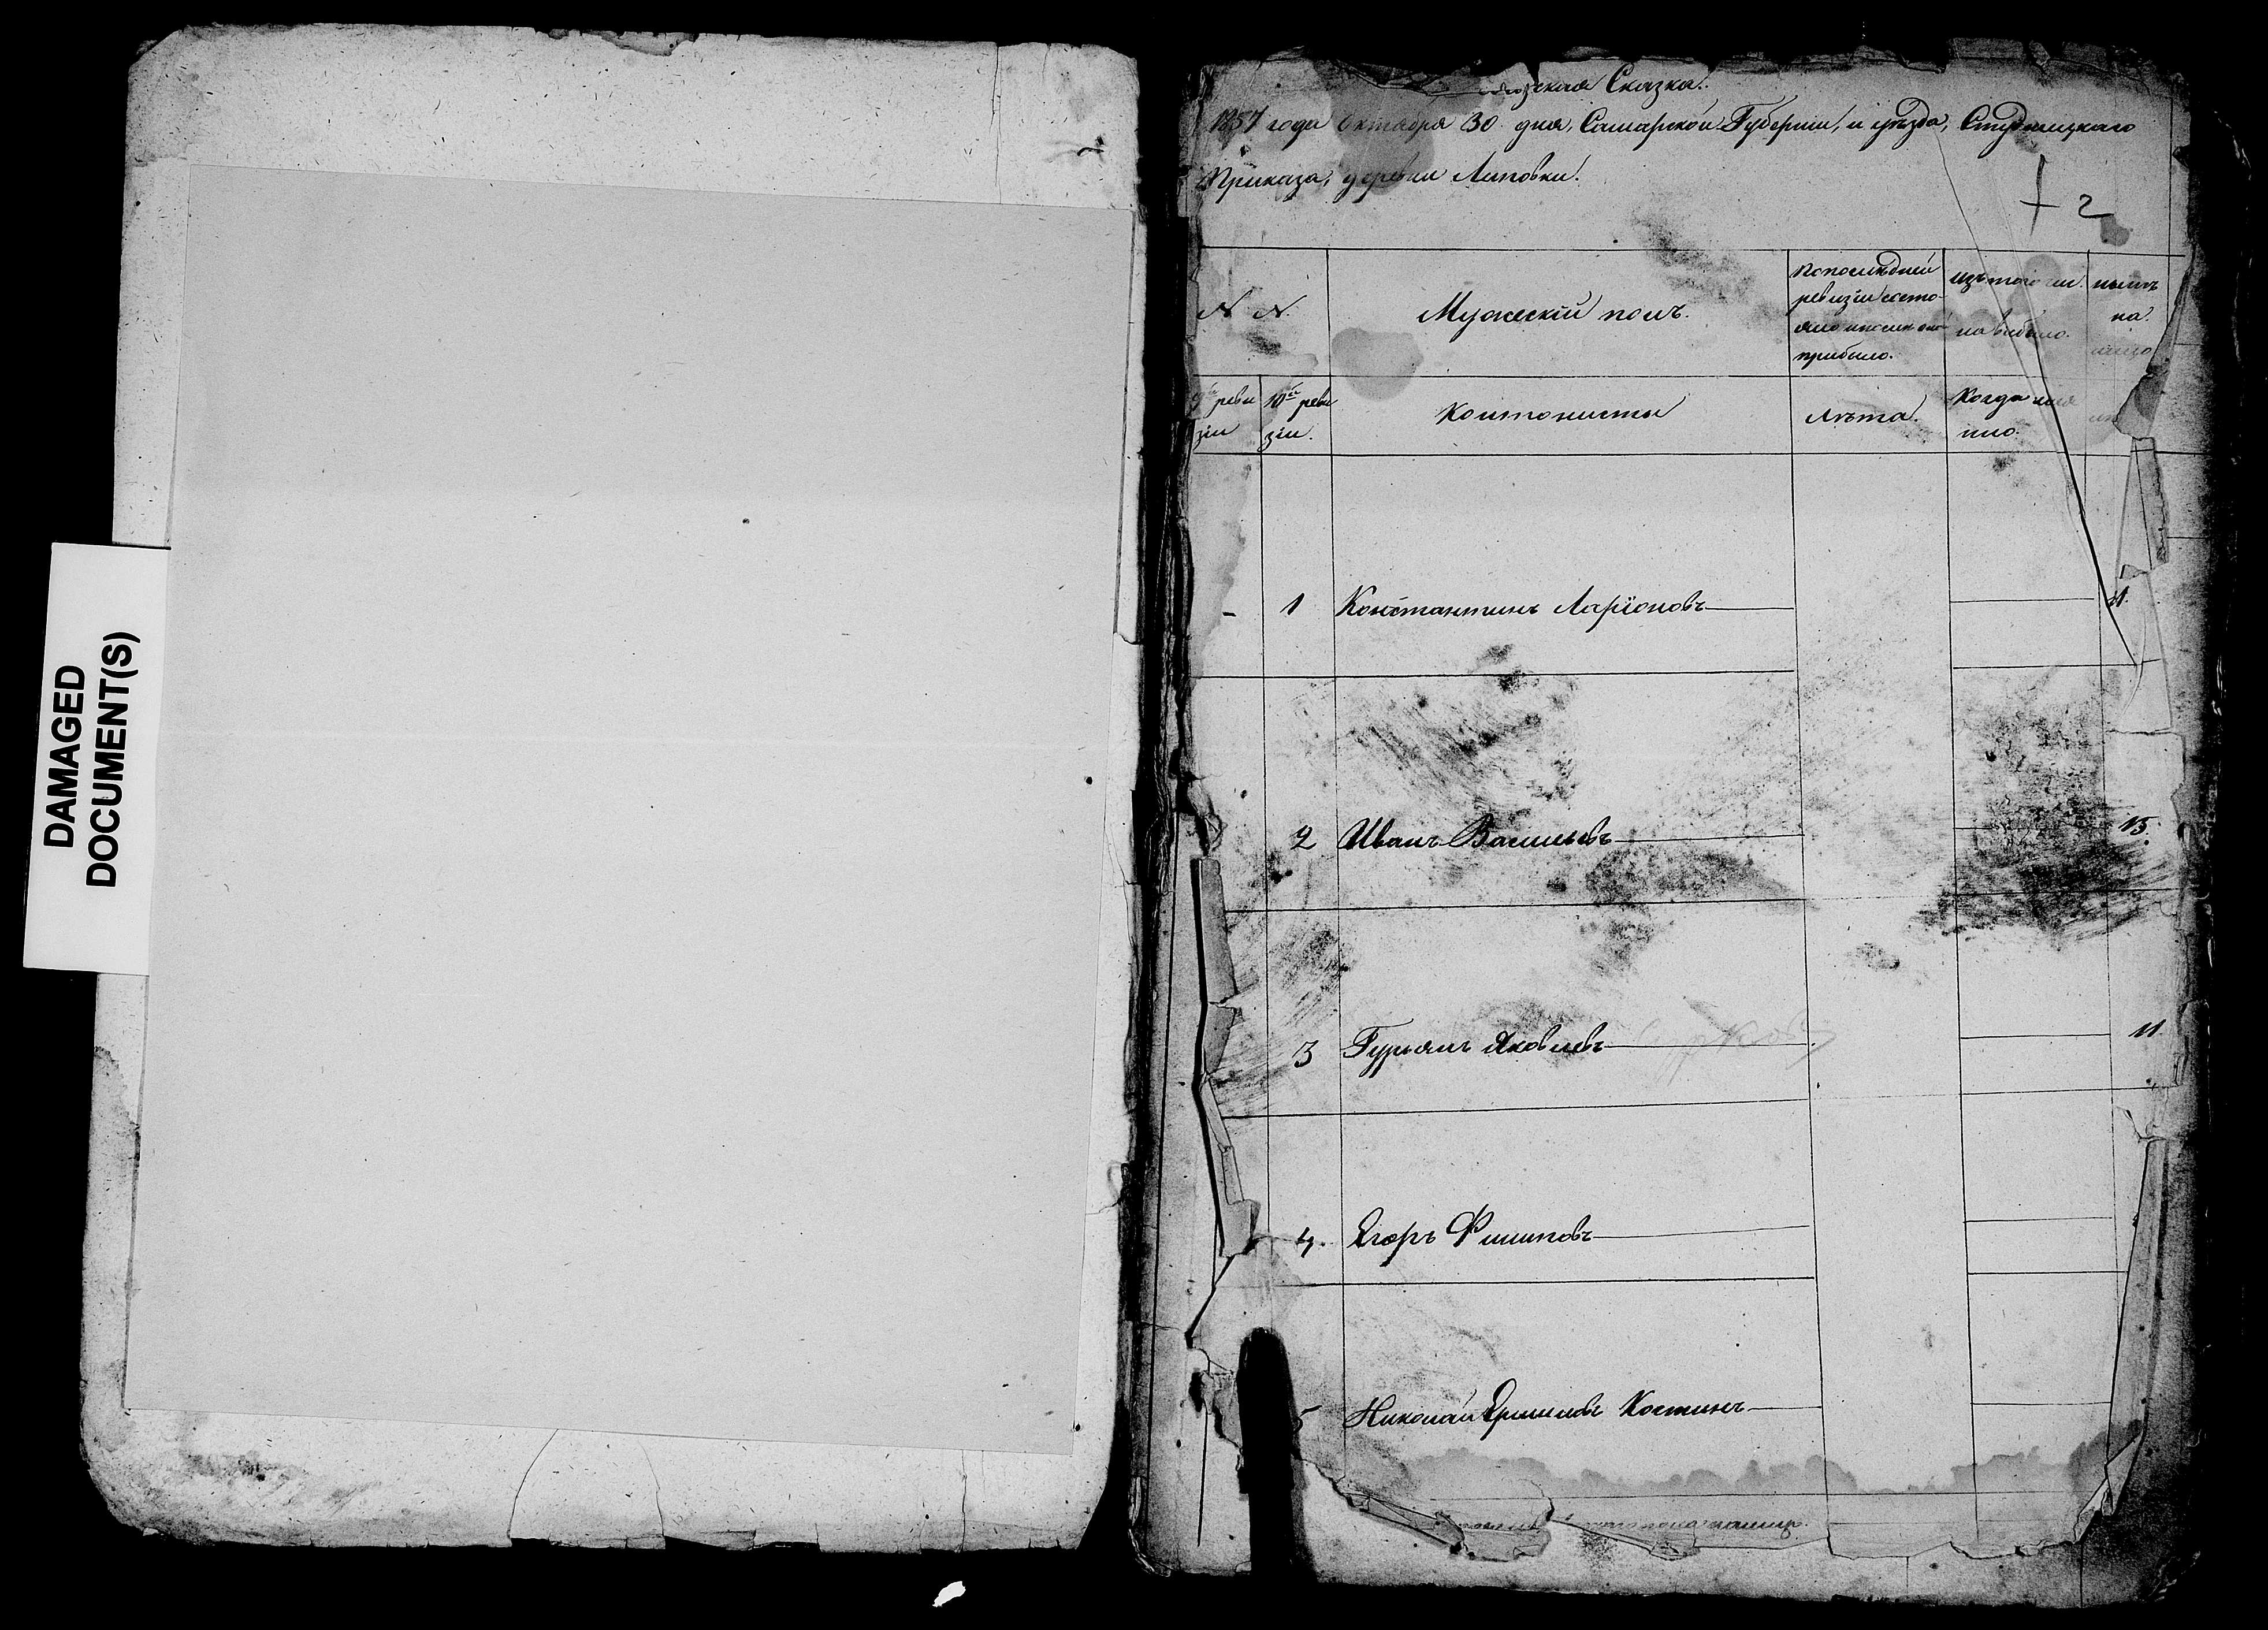 DAMAGED
DOCUMENT(S)
Сказка.
1857 года Октября 30 дня, Самарской Губернии, и уѣзда,
Приказа, деревни Липовки.
+ 2
N N.
Мужескій полъ.
По послѣдней
ревизіи состо-
яло и послѣ
прибыло.
изъ того чи
на выбыло.
нынѣ
на
лицо
9й реви
зіи
10й реви
зіи.
Кантонисты
Лѣта.
Когда имя
нно.
- 1 Константинъ Ларіоновъ
2 Иванъ Васильевъ 15.
3 Гурьянъ Яковлевъ 11.
4. Егоръ Филиповъ
5 Николай Ермиловъ Костинъ